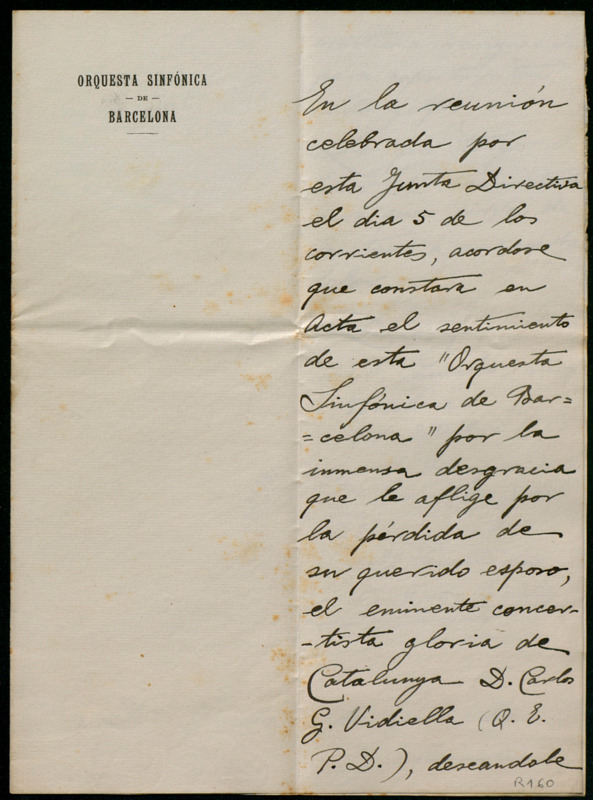 ORQUESTA SINFÓNICA
— DE —
BARCELONA
En la reunión
celebrada por
esta Junta Directiva
el dia 5 de los
corrientes, acordose
que constara en
Acta el sentimiento
de esta "Orquesta
Sinfónica de Bar=
=celona" por la
inmensa desgracia
que le aflige por
la pérdida de
su querido esposo,
el eminente concer-
-tista gloria de
Catalunya D. Carlos
G. Vidiella (Q. E.
P. D.), deseandole
R160